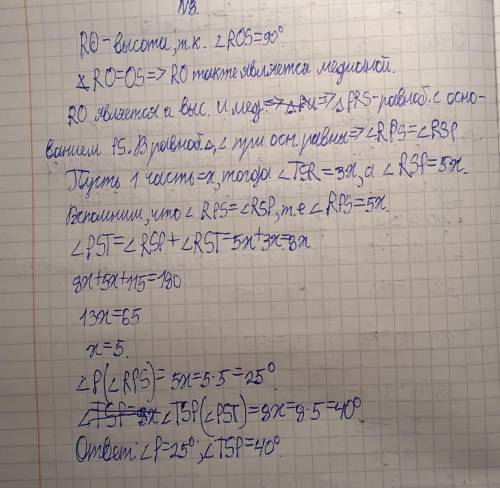 N3.
RO-высота, т.к. ∠ROS=90°
∡ RO=OS=> RO также является медианой.
RO является а выс. и мед=> △PRS-равноб. с осно-
ванием PS. В равноб.△, ∠ при осн. равны=>∠RPS=∠RSP
Пусть 1 часть=x, тогда ∠TSR=3x, а ∠RSP=5x.
Вспомним, что ∠ RPS=∠RSP, т.е ∠ RPS=5x.
∠PST=∠RSP+∠RST=5x+3x=8x
8x+5x+115=180
13x=65
x=5.
∠P(∠RPS)= 5x=5·5=25°
∠TSP=8x ∠TSP(∠PST)=8x=8·5=40°
Ответ: ∠P=25°; ∠TSP=40°.